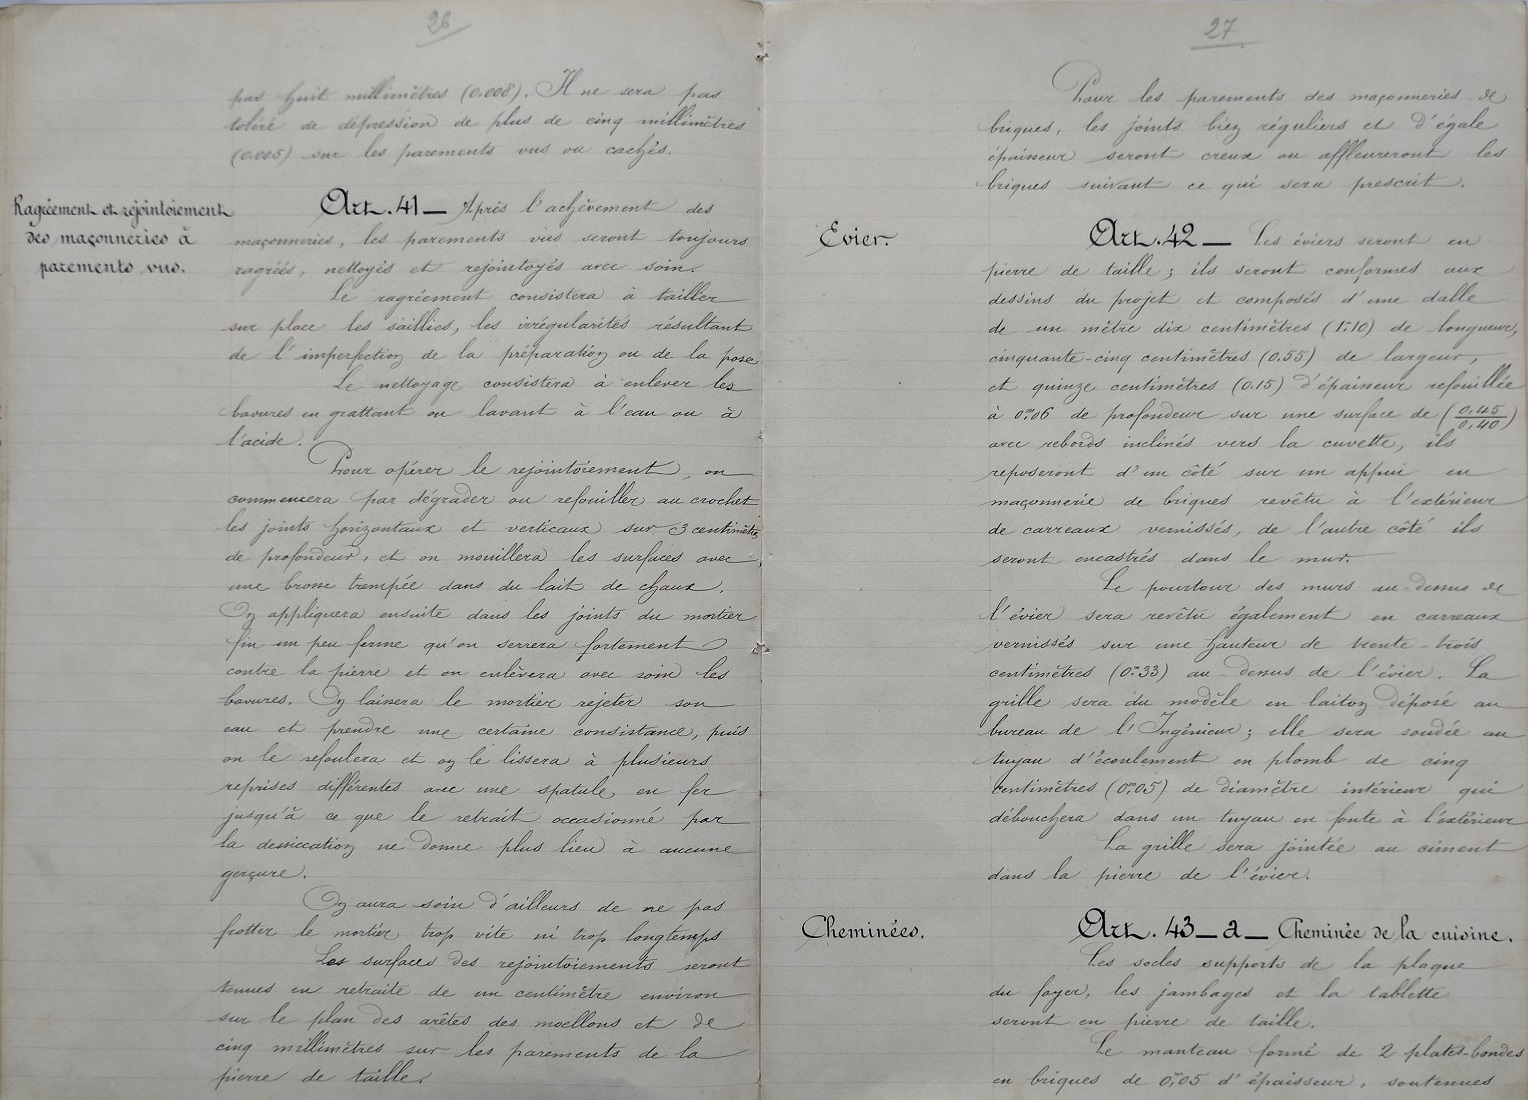 26
par huit millimètres (0.008). Il ne sera pas
toléré de dépression de plus de cinq millimètres
(0.005) sur les parements vus ou cachés.
Ragréement et rejointoiement
des maçonneries à
parements vus.
Art. 41 — Après l'achèvement des
maçonneries, les parements vus seront toujours
ragréés, nettoyés et rejointoyés avec soin.
Le ragréement consistera à tailler
sur place les saillies, les irrégularités résultant
de l'imperfection de la préparation ou de la pose
Le nettoyage consistera à enlever les
bavures en grattant ou lavant à l'eau ou à
l'acide.
Pour opérer le rejointoiement, on
commencera par dégrader ou refouiller au crochet
les joints horizontaux et verticaux sur 3 centimètres
de profondeur, et on mouillera les surfaces avec
une brosse trempée dans du lait de chaux.
On appliquera ensuite dans les joints du mortier
fin un peu ferme qu'on serrera fortement
contre la pierre et on enlèvera avec soin les
bavures. On laissera le mortier rejeter son
eau et prendre une certaine consistance, puis
on le refoulera et on le lissera à plusieurs
reprises différentes avec une spatule en fer
jusqu'à ce que le retrait occasionné par
la dessiccation ne donne plus lieu à aucune
gerçure.
On aura soin d'ailleurs de ne pas
frotter le mortier trop vite ni trop longtemps
Les surfaces des rejointoiements seront
tenues en retraite de un centimètre environ
sur le plan des arêtes des moellons et de
cinq millimètres sur les parements de la
pierre de taille.
27
Pour les parements des maçonneries de
briques, les joints bien réguliers et d'égale
épaisseur seront creux ou affleureront les
briques suivant ce qui sera prescrit.
Evier.
Art. 42 — Les éviers seront en
pierre de taille ; ils seront conformes aux
dessins du projet et composés d'une dalle
de un mètre dix centimètres (1m10) de longueur,
cinquante-cinq centimètres (0.55) de largeur,
et quinze centimètres (0.15) d'épaisseur refouillée
à 0m06 de profondeur sur une surface de (0.45/0.40)
avec rebords inclinés vers la cuvette, ils
reposeront d'un côté sur un appui en
maçonnerie de briques revêtu à l'extérieur
de carreaux vernissés, de l'autre côté ils
seront encastrés dans le mur.
Le pourtour des murs au-dessus de
l'évier sera revêtu également en carreaux
vernissés sur une hauteur de trente-trois
centimètres (0m33) au-dessus de l'évier. La
grille sera du modèle en laiton déposé au
bureau de l'Ingénieur ; elle sera soudée au
tuyau d'écoulement en plomb de cinq
centimètres (0m05) de diamètre intérieur qui
débouchera dans un tuyau en fonte à l'extérieur
La grille sera jointée au ciment
dans la pierre de l'évier.
Cheminées.
Art. 43 — a — Cheminée de la cuisine.
Les socles supports de la plaque
du foyer, les jambages et la tablette
seront en pierre de taille.
Le manteau formé de 2 plates-bandes
en briques de 0m05 d'épaisseur, soutenues